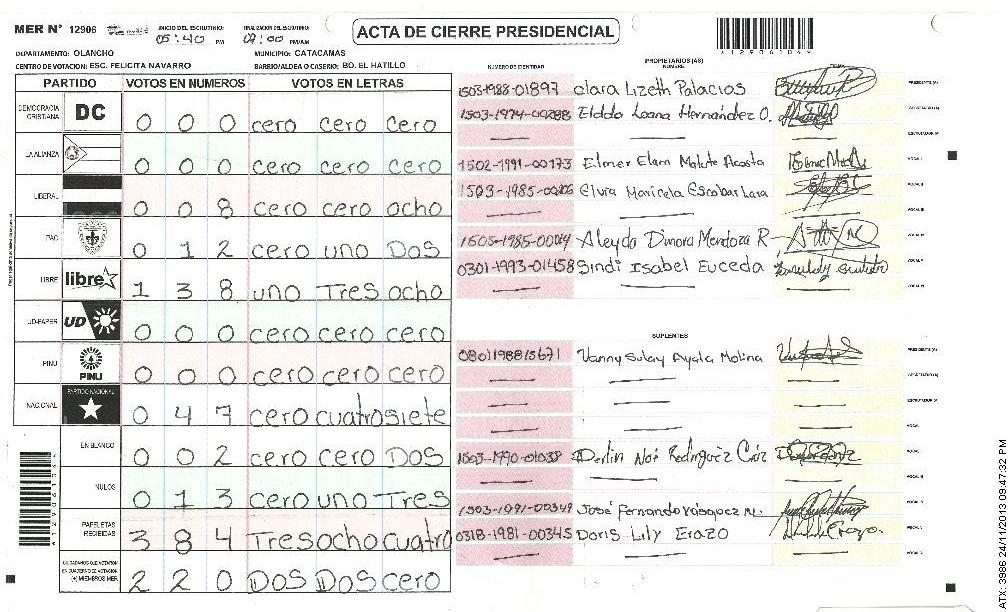 MER N° 12906
INICIO DEL ESCRUTINIO: 05:40 PM
FINALIZACION DEL ESCRUTINIO: 07:00 PM/AM
ACTA DE CIERRE PRESIDENCIAL
DEPARTAMENTO: OLANCHO
MUNICIPIO: CATACAMAS
CENTRO DE VOTACION: ESC. FELICITA NAVARRO
BARRIO/ALDEA O CASERIO: BO. EL HATILLO
PARTIDO VOTOS EN NUMEROS VOTOS EN LETRAS
DEMOCRACIA CRISTIANA DC 0 0 0 cero cero cero
LA ALIANZA 0 0 0 cero cero cero
LIBERAL 0 0 8 cero cero ocho
PAC 0 1 2 cero uno Dos
LIBRE libre 1 3 8 uno Tres ocho
UD-FAPER UD 0 0 0 cero cero cero
PINU PINU 0 0 0 cero cero cero
NACIONAL PARTIDO NACIONAL 0 4 7 cero cuatro siete
EN BLANCO 0 0 2 cero cero Dos
NULOS 0 1 3 cero uno Tres
PAPELETAS RECIBIDAS 3 8 4 Tres ocho cuatro
CIUDADANOS QUE VOTARON EN CUADERNO DE VOTACION (+) MIEMBROS MER 2 2 0 Dos Dos cero
PROPIETARIOS (AS)
NUMERO DE IDENTIDAD NOMBRE FIRMA
1503-1983-01897 Clara Lizeth Palacios PRESIDENTE (A)
1503-1974-00288 Elddo Loana Hernández O. SECRETARIO (A)
ESCRUTADOR (A)
1502-1991-00173 Elmer Elam Malute Acosta VOCAL I
1503-1985- Elvia Maricela Escobar Lara VOCAL II
VOCAL III
1505-1985-0004 Aleyda Dinora Mendoza R. VOCAL IV
0301-1993-01458 Sindi Isabel Euceda VOCAL V
VOCAL VI
SUPLENTES
0801198815671 Vanny Sulay Ayala Molina PRESIDENTE (A)
SECRETARIO (A)
ESCRUTADOR (A)
VOCAL I
1503-1990-01038 Derlin Noé Rodriguez Cruz VOCAL II
VOCAL III
1503-1991-00349 José Fernando Vásquez M. VOCAL IV
0318-1981-00345 Doris Lily Erazo VOCAL V
VOCAL VI
ATX: 3986 24/11/2013 09:47:32 PM